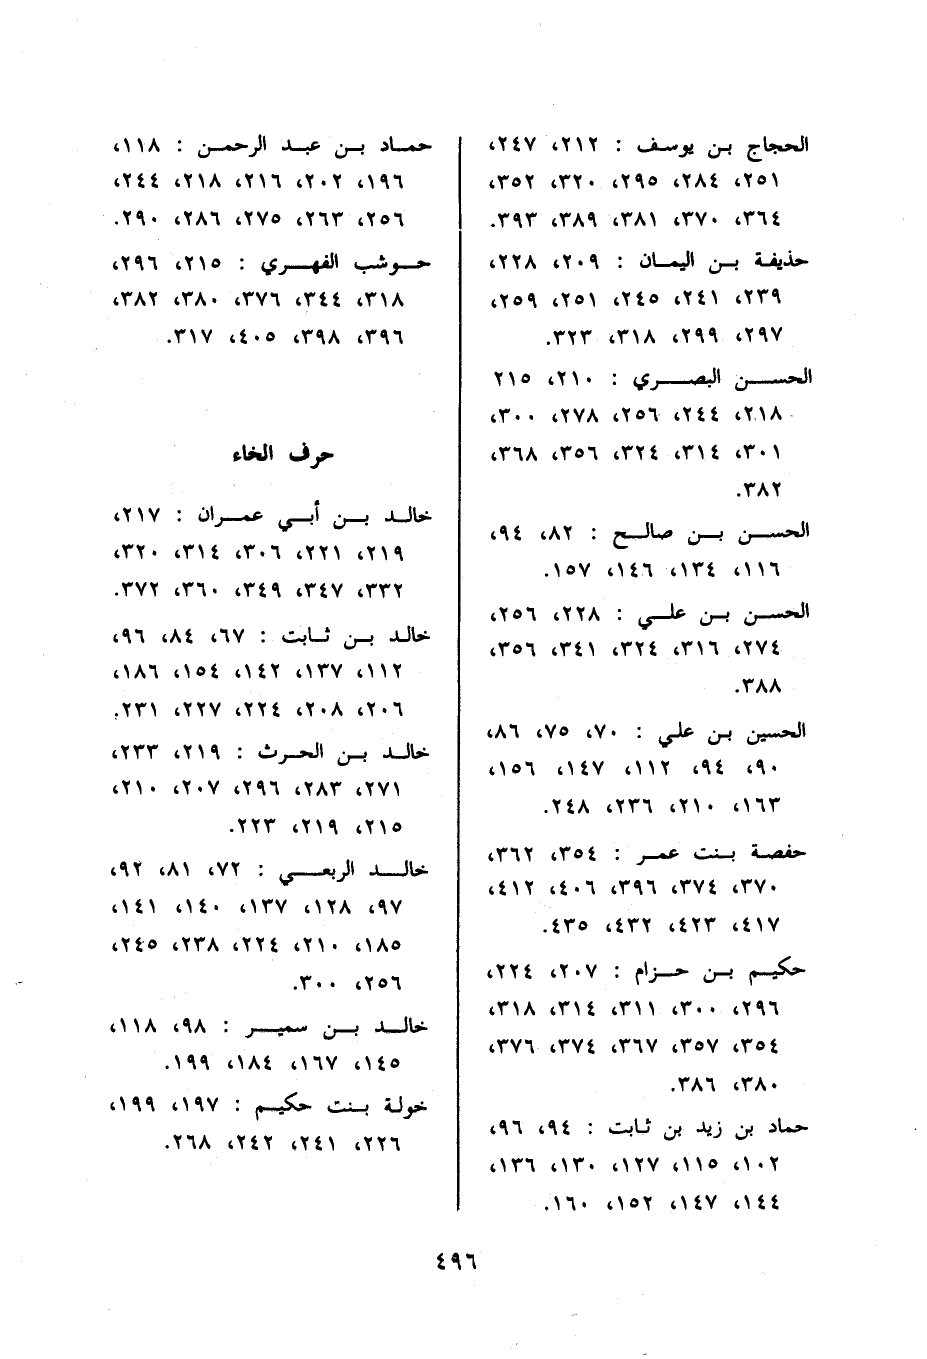 الحجاج بن يوسف : ٢١٢، ٢٤٧،
٢٥١، ٢٨٤، ٢٩٥، ٣٢٠، ٣٥٢،
٣٦٤، ٣٧٠، ٣٨١، ٣٨٩، ٣٩٣.
حذيفة بن اليمان : ٢٠٩، ٢٢٨،
٢٣٩، ٢٤١، ٢٤٥، ٢٥١، ٢٥٩،
٢٩٧، ٢٩٩، ٣١٨، ٣٢٣.
الحسن البصري : ٢١٠، ٢١٥
٢١٨، ٢٤٤، ٢٥٦، ٢٧٨، ٣٠٠،
٣٠١، ٣١٤، ٣٢٤، ٣٥٦، ٣٦٨،
٣٨٢.
الحسن بن صالح : ٨٢، ٩٤،
١١٦، ١٣٤، ١٤٦، ١٥٧.
الحسن بن علي : ٢٢٨، ٢٥٦،
٢٧٤، ٣١٦، ٣٢٤، ٣٤١، ٣٥٦،
٣٨٨.
الحسين بن علي : ٧٠، ٧٥، ٨٦،
٩٠، ٩٤، ١١٢، ١٤٧، ١٥٦،
١٦٣، ٢١٠، ٢٣٦، ٢٤٨.
حفصة بنت عمر : ٣٥٤، ٣٦٢،
٣٧٠، ٣٧٤، ٣٩٦، ٤٠٦، ٤١٢،
٤١٧، ٤٢٣، ٤٣٢، ٤٣٥.
حكيم بن حزام : ٢٠٧، ٢٢٤،
٢٩٦، ٣٠٠، ٣١١، ٣١٤، ٣١٨،
٣٥٤، ٣٥٧، ٣٦٧، ٣٧٤، ٣٧٦،
٣٨٠، ٣٨٦.
حماد بن زيد بن ثابت : ٩٤، ٩٦،
١٠٢، ١١٥، ١٢٧، ١٣٠، ١٣٦،
١٤٤، ١٤٧، ١٥٢، ١٦٠.
حماد بن عبد الرحمن : ١١٨،
١٩٦، ٢٠٢، ٢١٦، ٢١٨، ٢٤٤،
٢٥٦، ٢٦٣، ٢٧٥، ٢٨٦، ٢٩٠.
حوشب الفهري : ٢١٥، ٢٩٦،
٣١٨، ٣٤٤، ٣٧٦، ٣٨٠، ٣٨٢،
٣٩٦، ٣٩٨، ٤٠٥، ٣١٧.
حرف الخاء
خالد بن أبي عمران : ٢١٧،
٢١٩، ٢٢١، ٣٠٦، ٣١٤، ٣٢٠،
٣٣٢، ٣٤٧، ٣٤٩، ٣٦٠، ٣٧٢.
خالد بن ثابت : ٦٧، ٨٤، ٩٦،
١١٢، ١٣٧، ١٤٢، ١٥٤، ١٨٦،
٢٠٦، ٢٠٨، ٢٢٤، ٢٢٧، ٢٣١.
خالد بن الحرث : ٢١٩، ٢٣٣،
٢٧١، ٢٨٣، ٢٩٦، ٢٠٧، ٢١٠،
٢١٥، ٢١٩، ٢٢٣.
خالد الربعي : ٧٢، ٨١، ٩٢،
٩٧، ١٢٨، ١٣٧، ١٤٠، ١٤١،
١٨٥، ٢١٠، ٢٢٤، ٢٣٨، ٢٤٥،
٢٥٦، ٣٠٠.
خالد بن سمير : ٩٨، ١١٨،
١٤٥، ١٦٧، ١٨٤، ١٩٩.
خولة بنت حكيم : ١٩٧، ١٩٩،
٢٢٦، ٢٤١، ٢٤٢، ٢٦٨.
٤٩٦